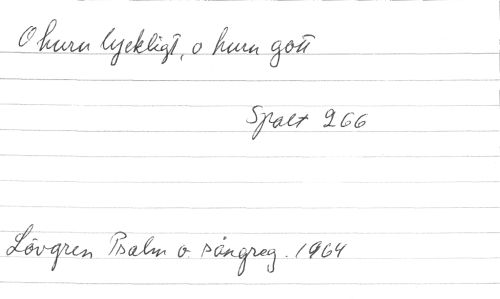 O huru lyckligt, o huru gott
Spalt 266
Lövgren Psalm o. sångreg. 1964